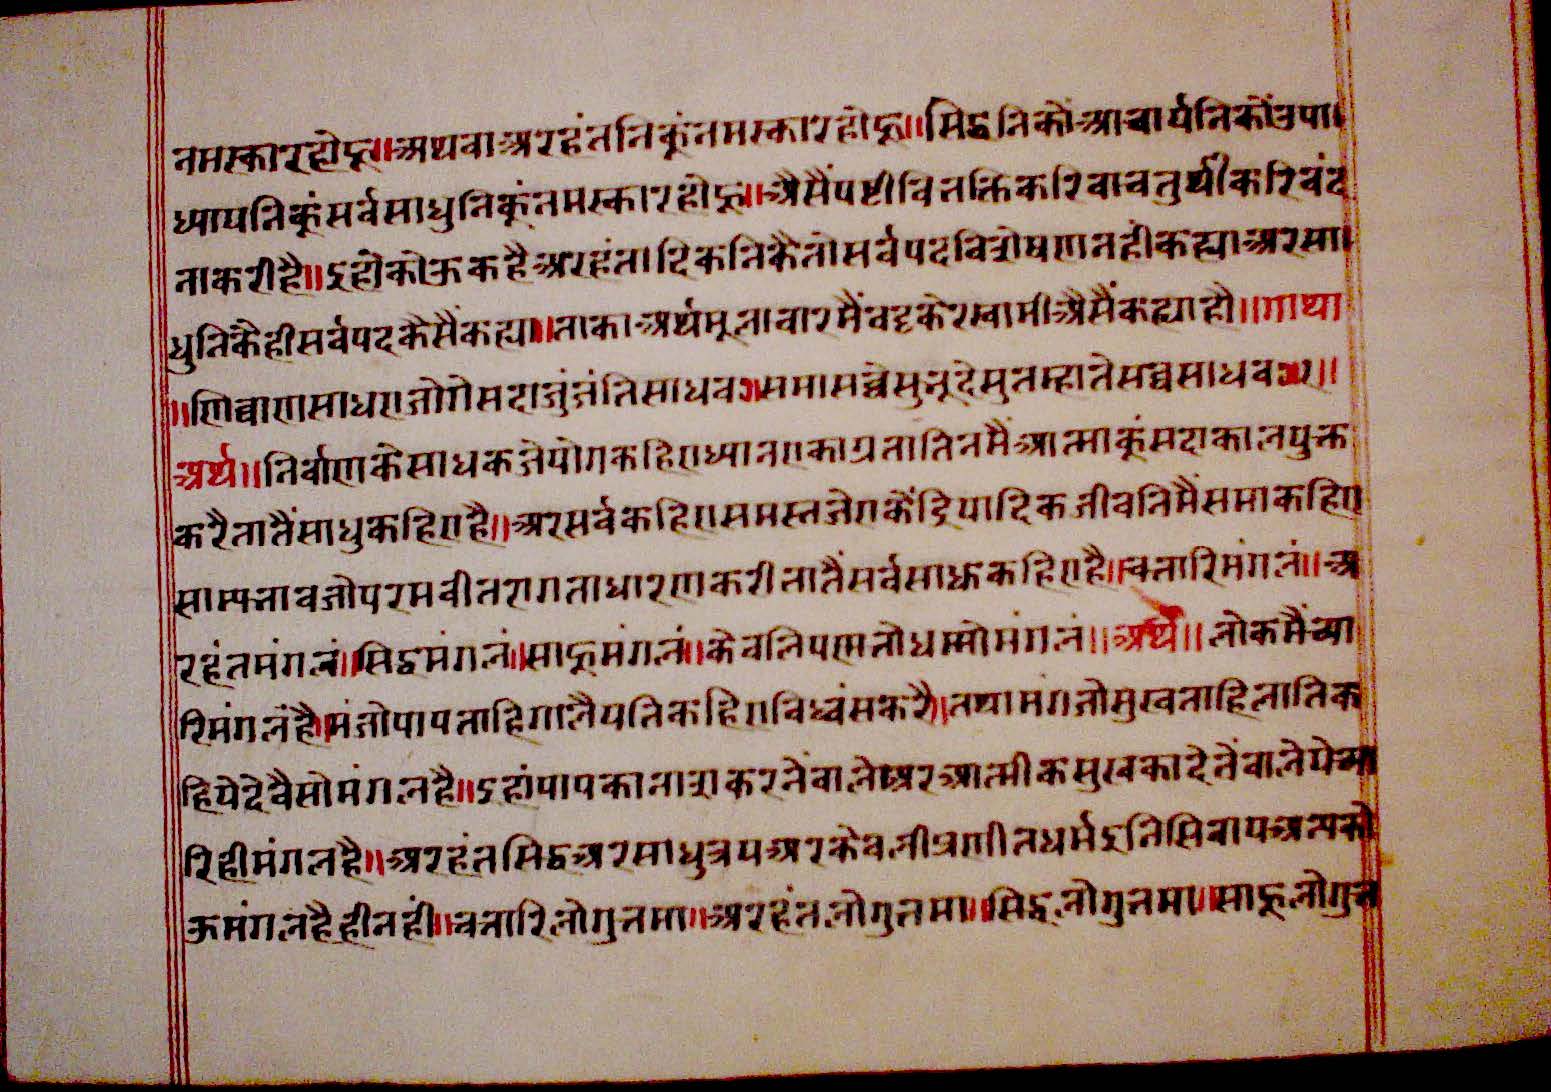 नमस्कारहोहू॥अथवाअरहंतनिकूंनमस्कारहोहू॥सिद्धनिकोंआचार्यनिकोंउपा
ध्यायनिकूंसर्वसाधुनिकूंनमस्कारहोहू॥अैसैंषष्टीविभक्तिकरिवाचतुर्थीकरिवंद
नाकरीहै॥इहांकोऊकहैअरहंतादिकनिकैतोसर्वपदविशेषणनहीकह्याअरसा
धुनिकैहीसर्वपदकैसैंकह्या॥ताकाअर्थमूलाचारमैंवट्टकेरस्वामीअैसैंकह्याहै॥गाथा
॥णिव्वाणसाधएजोगेसदाजुंजंतिसाधवः॥समासव्वेसुभूदेसुतम्हातेसव्वसाधवः॥१॥
अर्थ॥निर्वाणकेसाधकजेयोगकहिएध्यानएकाग्रतातिनमैंआत्माकूंसदाकालयुक्त
करैतातैंसाधुकहिएहै॥अरसर्वकहिएसमस्तजेएकेंद्रियादिकजीवनिमैंसमाकहिए
साम्यभावजोपरमवीतरागताधारणकरीतातैंसर्वसाधुकहिएहै॥चत्तारिमंगलं॥अ
रहंतमंगलं॥सिद्धमंगलं॥साहूमंगलं॥केवलिपणत्तोधम्मोमंगलं॥अर्थ॥लोकमैंच्या
रिमंगलहै॥मंजोपापताहिगालैयतिकहिएविध्वंसकरै॥तथामंगजोसुखताहिलातिक
हियेदेवैसोमंगलहै॥इहांपापकानाशकरनेंवालेअरआत्मीकसुखकादेनेंवालेयेच्या
रिहीमंगलहै॥अरहंतसिद्धअरसाधुत्रयअरकेवलीप्रणीतधर्मइनिसिवायअन्यको
ऊमंगलहैहीनहीं॥चत्तारिलोगुत्तमा॥अरहंतलोगुत्तमा॥सिद्धलोगुत्तमा॥साहूलोगुत्त